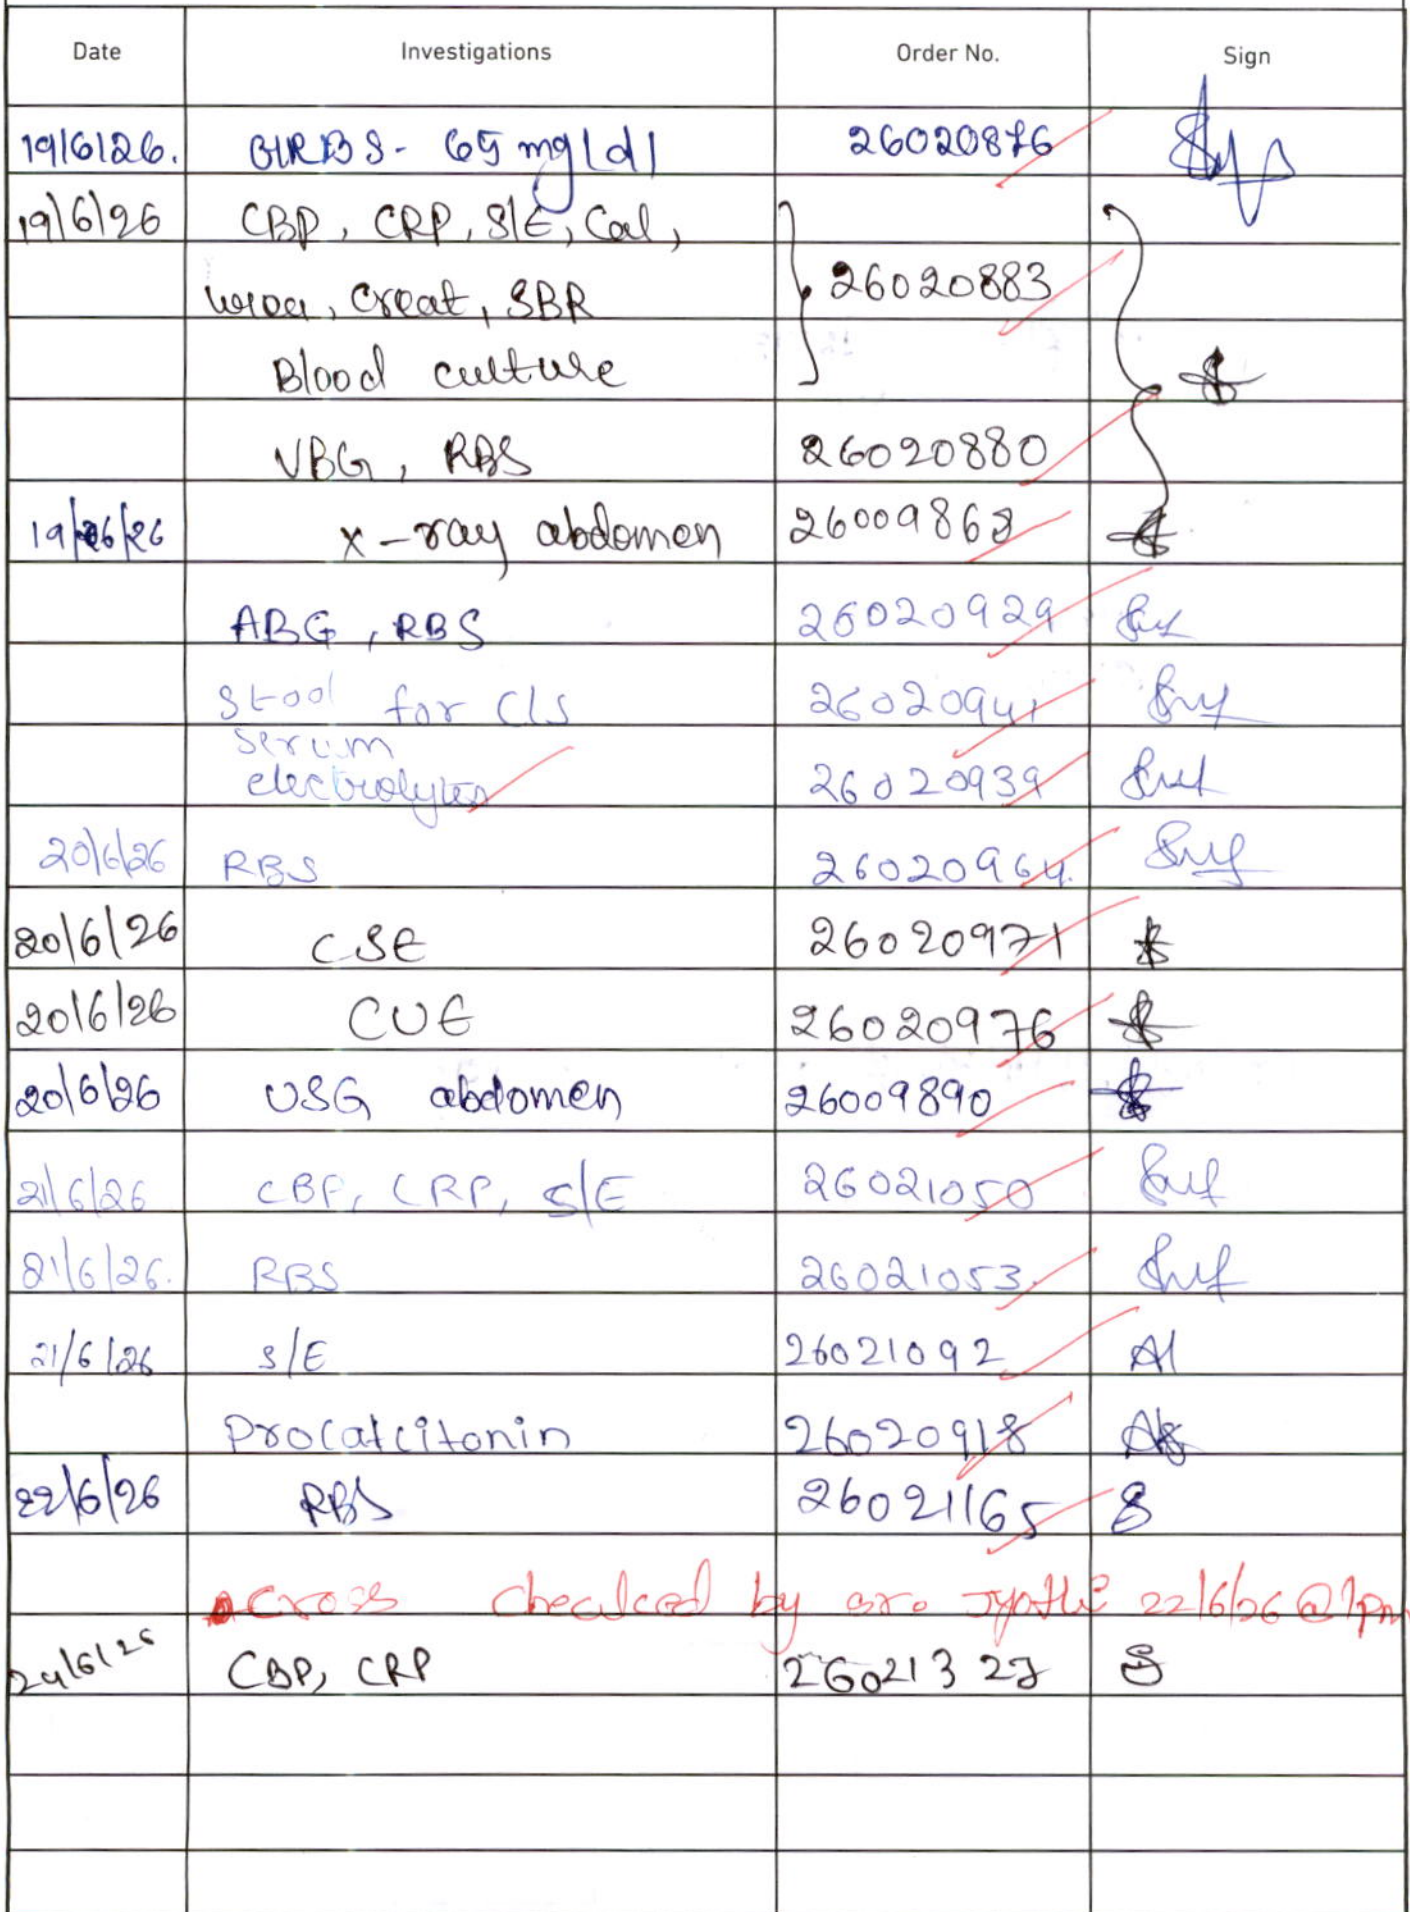 Date Investigations Order No. Sign
19/6/26. GRBS - 65 mg/dl 26020876
19/6/26 CBP, CRP, S/E, Cal,
urea, Creat, SBR 26020883
Blood culture
VBG, RBS 26020880
19/06/26 X-ray abdomen 26009868
ABG, RBS 26020929
Stool for C/S 26020941
Serum
electrolytes 26020939
20/6/26 RBS 26020964.
20/6/26 CSE 26020971
20/6/26 CUE 26020976
20/6/26 USG abdomen 26009890
21/6/26 CBP, CRP, S/E 26021050
21/6/26. RBS 26021053.
21/6/26 S/E 26021092
Procalcitonin 26020918
22/6/26 RBS 26021165
Cross checked by sr. Jyothi 22/6/26 @ 1pm
24/6/26 CBP, CRP 26021327